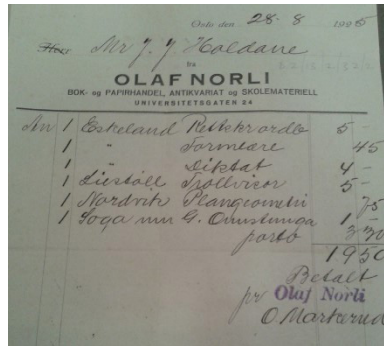 Oslo den 28-8 1925
Mr J. J. Holdane
fra
OLAF NORLI
BOK- og PAPIRHANDEL, ANTIKVARIAT og SKOLEMATERIELL
UNIVERSITETSGATEN 24
An 1 Eskeland 5 -
1 " Formlære 45
1 " Diktat 4 -
1 Liestöll Trollvisor 5 -
1 Nordvik Plangeometri 75
1 Soga um G. Ormstunga 1 -
porto 3 30
19 50
Betalt
pr Olaf Norli